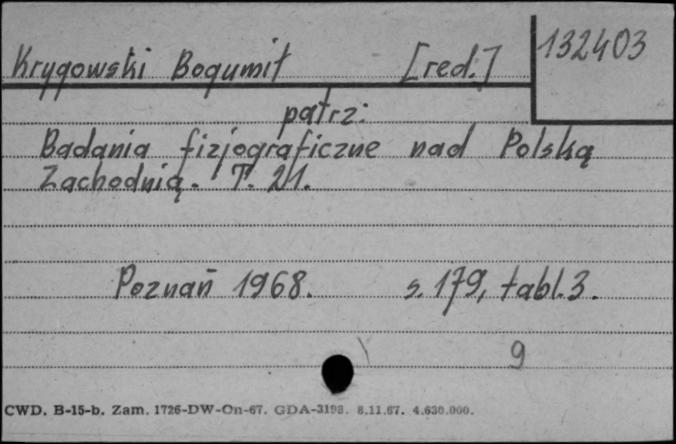 Krygowski Bogumił [red.] 132403
patrz:
Badania fizjograficzne nad Polską
Zachodnią. T. 21.
Poznań 1968. s. 179, tabl. 3.
9
CWD. B-15-b. Zam. 1726-DW-On-67. GDA-3198. 8.11.67. 4.630.000.